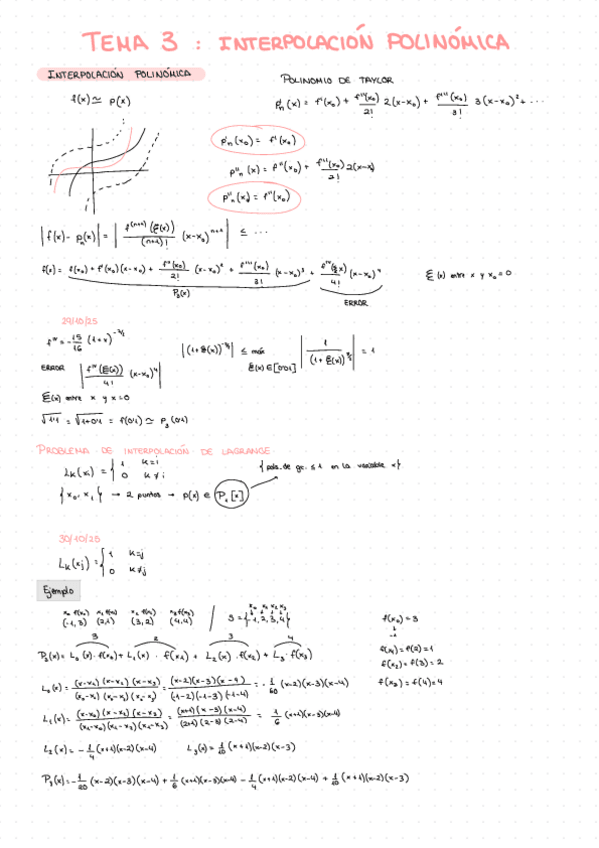 TEMA 3 : INTERPOLACIÓN POLINÓMICA
INTERPOLACIÓN POLINÓMICA
POLINOMIO DE TAYLOR
f(x) ≃ p(x)
p'ₙ(x) = f'(x₀) + f''(x₀)/2! 2(x-x₀) + f'''(x₀)/3! 3(x-x₀)² + ...
p'ₙ(x₀) = f'(x₀)
p''ₙ(x) = f''(x₀) + f'''(x₀)/2! 2(x-x₀)
p''ₙ(x₀) = f''(x₀)
|f(x) - pₙ(x)| = | f⁽ⁿ⁺¹⁾(ξ(x))/(n+1)! (x-x₀)ⁿ⁺¹ | ≤ ...
f(x) = f(x₀) + f'(x₀)(x-x₀) + f''(x₀)/2! (x-x₀)² + f'''(x₀)/3! (x-x₀)³ + f^IV(ξx)/4! (x-x₀)⁴
ξ(x) entre x y x₀=0
P₃(x)
ERROR
29/10/25
f^IV = -15/16 (1+x)^-7/2
|(1+ξ(x))^-7/2| ≤ máx | 1/(1+ξ(x))^7/2 | = 1
ξ(x) ∈ [0,0'1]
ERROR | f^IV(ξ(x))/4! (x-x₀)⁴ |
ξ(x) entre x y x=0
√1'1 = √1+0'1 = f(0'1) ≃ P₃(0'1)
PROBLEMA DE INTERPOLACIÓN DE LAGRANGE
Lk(xi) = { 1 k=i
0 k≠i
{pols. de gr. ≤ 1 en la variable x}
{x₀, x₁} → 2 puntos → p(x) ∈ P₁[x]
30/10/25
Lk(xj) = { 1 k=j
0 k≠j
Ejemplo
x₀ f(x₀) x₁ f(x₁) x₂ f(x₂) x₃ f(x₃)
(-1,3) (2,1) (3,2) (4,4)
x₀ x₁ x₂ x₃
S = {-1,2,3,4}
f(x₀) = 3
-1
f(x₁) = f(2) = 1
f(x₂) = f(3) = 2
f(x₃) = f(4) = 4
P₃(x) = L₀(x)·f(x₀) + L₁(x)·f(x₁) + L₂(x)·f(x₂) + L₃·f(x₃)
L₀(x) = (x-x₁)(x-x₂)(x-x₃)/(x₀-x₁)(x₀-x₂)(x₀-x₃) = (x-2)(x-3)(x-4)/(-1-2)(-1-3)(-1-4) = -1/60 (x-2)(x-3)(x-4)
L₁(x) = (x-x₀)(x-x₂)(x-x₃)/(x₁-x₀)(x₁-x₂)(x₁-x₃) = (x+1)(x-3)(x-4)/(2+1)(2-3)(2-4) = 1/6 (x+1)(x-3)(x-4)
L₂(x) = -1/4 (x+1)(x-2)(x-4) L₃(x) = 1/10 (x+1)(x-2)(x-3)
P₃(x) = -1/20 (x-2)(x-3)(x-4) + 1/6 (x+1)(x-3)(x-4) - 1/4 (x+1)(x-2)(x-4) + 1/10 (x+1)(x-2)(x-3)